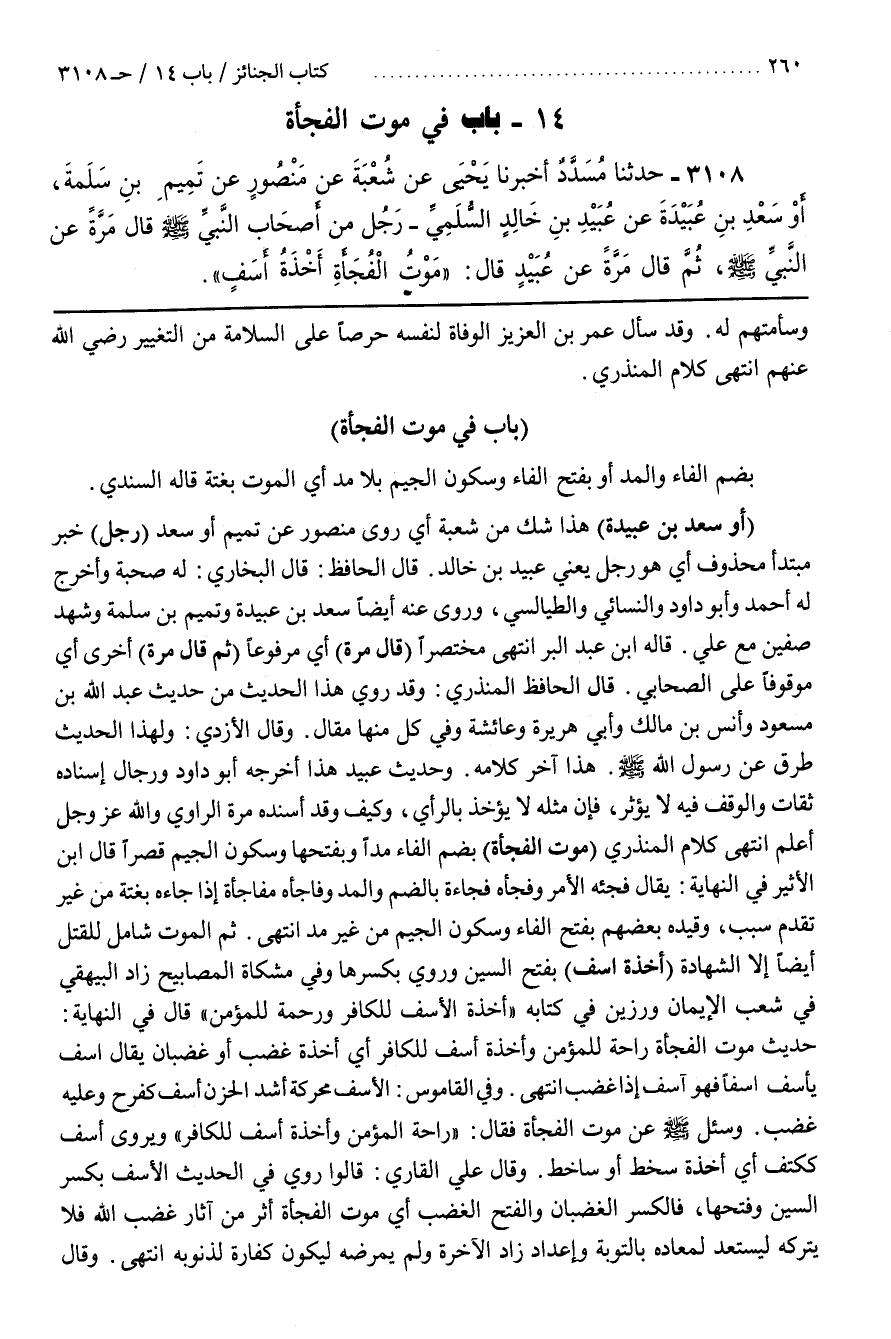 ٢٦٠ ........................................................ كتاب الجنائز / باب ١٤ / حـ ٣١٠٨
١٤ - باب في موت الفجأة
٣١٠٨ - حدثنا مُسَدَّدٌ أخبرنا يَحْيَى عن شُعْبَةَ عن مَنْصُورٍ عن تَمِيمِ بنِ سَلَمَةَ،
أَوْ سَعْدِ بنِ عُبَيْدَةَ عن عُبَيْدِ بنِ خَالِدٍ السُّلَمِيِّ - رَجُل من أَصحَاب النَّبيِّ ﷺ قال مَرَّةً عن
النَّبيِّ ﷺ، ثُمَّ قال مَرَّةً عن عُبَيْدٍ قال: «مَوْتُ الْفُجَأَةِ أَخْذَةُ أَسَفٍ».
وسأمتهم له. وقد سأل عمر بن العزيز الوفاة لنفسه حرصاً على السلامة من التغيير رضي الله
عنهم انتهى كلام المنذري.
(باب في موت الفجأة)
بضم الفاء والمد أو بفتح الفاء وسكون الجيم بلا مد أي الموت بغتة قاله السندي.
(أو سعد بن عبيدة) هذا شك من شعبة أي روى منصور عن تميم أو سعد (رجل) خبر
مبتدأ محذوف أي هو رجل يعني عبيد بن خالد. قال الحافظ: قال البخاري: له صحبة وأخرج
له أحمد وأبو داود والنسائي والطيالسي، وروى عنه أيضاً سعد بن عبيدة وتميم بن سلمة وشهد
صفين مع علي. قاله ابن عبد البر انتهى مختصراً (قال مرة) أي مرفوعاً (ثم قال مرة) أخرى أي
موقوفاً على الصحابي. قال الحافظ المنذري: وقد روي هذا الحديث من حديث عبد الله بن
مسعود وأنس بن مالك وأبي هريرة وعائشة وفي كل منها مقال. وقال الأزدي: ولهذا الحديث
طرق عن رسول الله ﷺ. هذا آخر كلامه. وحديث عبيد هذا أخرجه أبو داود ورجال إسناده
ثقات والوقف فيه لا يؤثر، فإن مثله لا يؤخذ بالرأي، وكيف وقد أسنده مرة الراوي والله عز وجل
أعلم انتهى كلام المنذري (موت الفجأة) بضم الفاء مداً وبفتحها وسكون الجيم قصراً قال ابن
الأثير في النهاية: يقال فجئه الأمر وفجأه فجاءة بالضم والمد وفاجأه مفاجأة إذا جاءه بغتة من غير
تقدم سبب، وقيده بعضهم بفتح الفاء وسكون الجيم من غير مد انتهى. ثم الموت شامل للقتل
أيضاً إلا الشهادة (أخذة اسف) بفتح السين وروي بكسرها وفي مشكاة المصابيح زاد البيهقي
في شعب الإيمان ورزين في كتابه «أخذة الأسف للكافر ورحمة للمؤمن» قال في النهاية:
حديث موت الفجأة راحة للمؤمن وأخذة أسف للكافر أي أخذة غضب أو غضبان يقال اسف
يأسف اسفاً فهو آسف إذا غضب انتهى. وفي القاموس: الأسف محركة أشد الحزن أسف كفرح وعليه
غضب. وسئل ﷺ عن موت الفجأة فقال: «راحة المؤمن وأخذة أسف للكافر» ويروى أسف
ككتف أي أخذة سخط أو ساخط. وقال علي القاري: قالوا روي في الحديث الأسف بكسر
السين وفتحها، فالكسر الغضبان والفتح الغضب أي موت الفجأة أثر من آثار غضب الله فلا
يتركه ليستعد لمعاده بالتوبة وإعداد زاد الآخرة ولم يمرضه ليكون كفارة لذنوبه انتهى. وقال